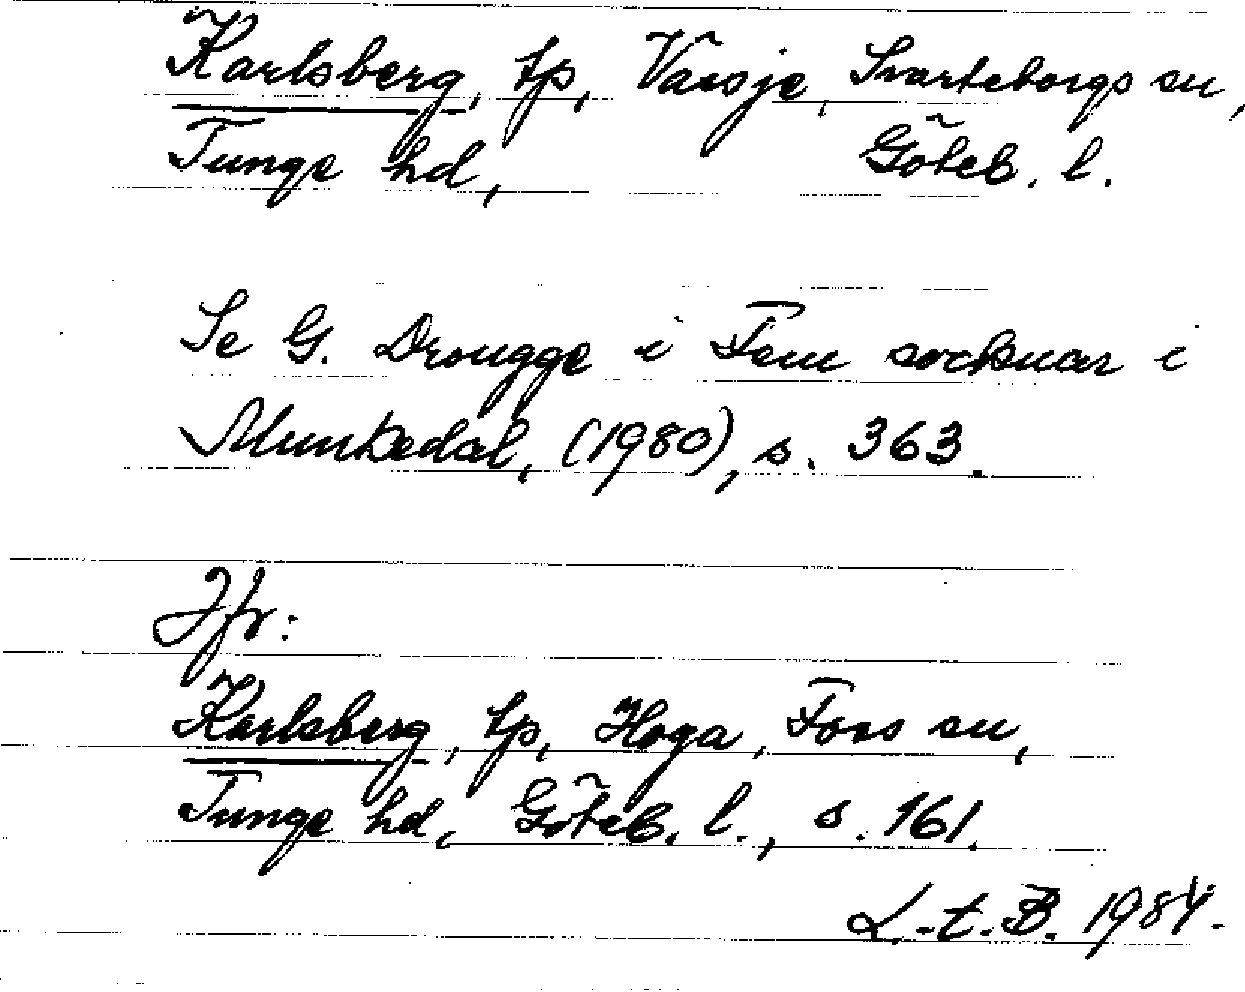 Karlsberg, tp, Vässje, Svarteborgs sn,
Tunge hd, Göteb. l.
Se G. Drougge i Fem socknar i
Munkedal, (1980), s. 363.
Jfr:
Karlsberg, tp, Hoga, Foss sn,
Tunge hd, Göteb. l., s. 161.
L.-t. B. 1984.